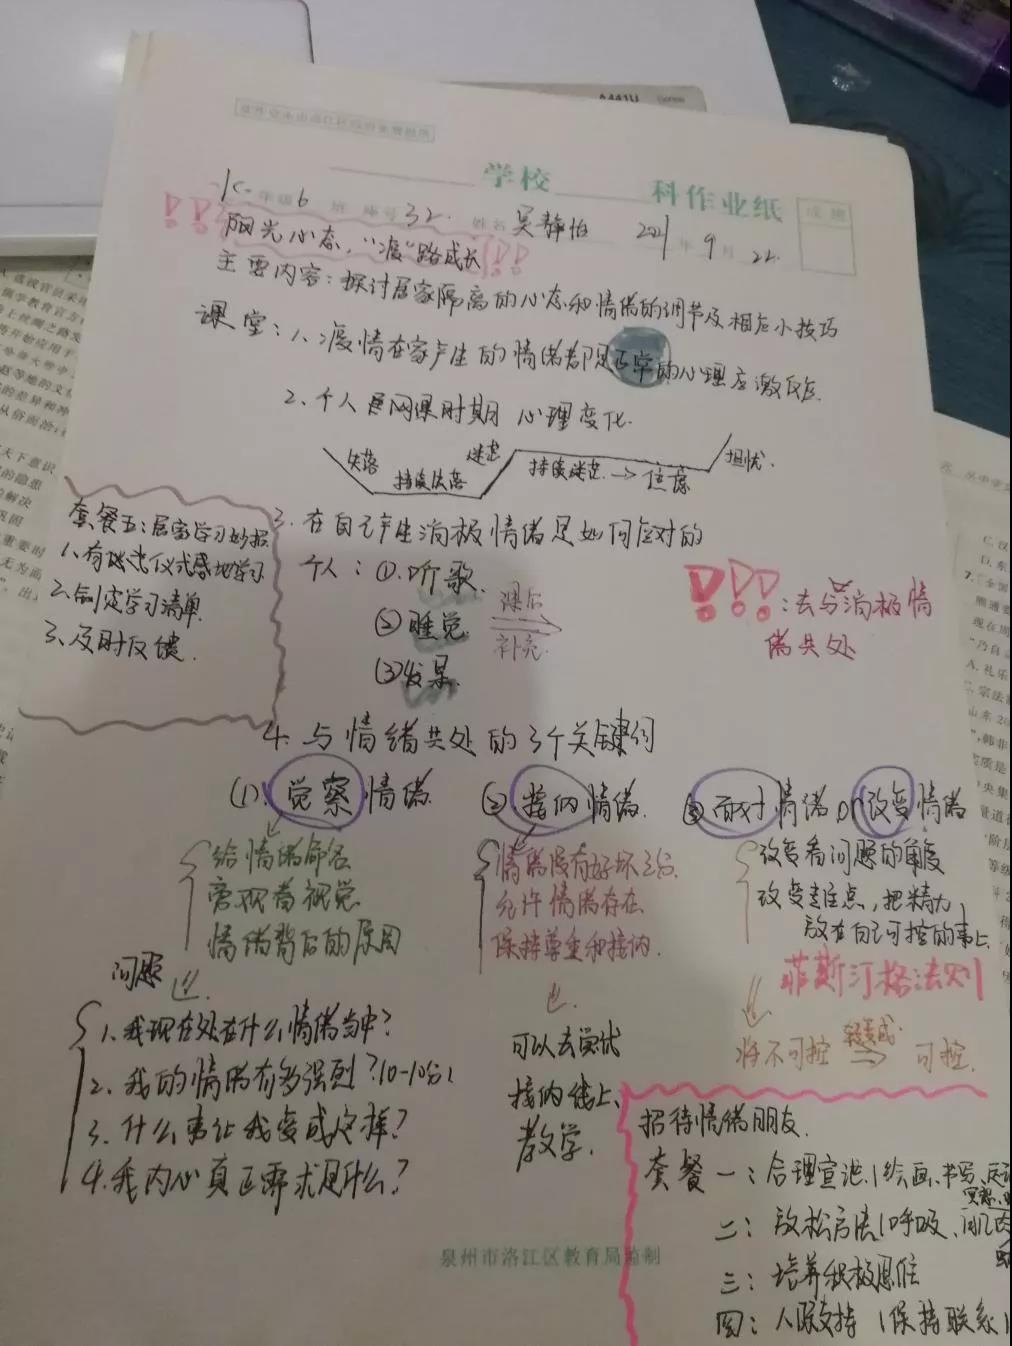 学校 科作业纸
年级6 班 座号32. 姓名 吴静怡 2021年9月22.
阳光心态，“疫”路成长
主要内容：探讨居家隔离的心态和情绪的调节及相应小技巧
课堂：1、疫情在家产生的情绪都是正常的心理应激反应.
2、个人居网课时期 心理变化.
失落 持续失落 迷茫 持续迷茫 → 焦虑 担忧.
套餐五：居家学习妙招
1、有仪式感地学习
2、制定学习清单.
3、及时反馈.
3. 在自己产生消极情绪是如何应对的
个人：①.听歌.
②睡觉.
③发呆.
课后
补充.
!!!：去与消极情
绪共处
4. 与情绪共处的3个关键词
(1). 觉察情绪.
给情绪命名
旁观者视觉
情绪背后的原因
问题
1、我现在处在什么情绪当中？
2、我的情绪有多强烈？(0-10分)
3、什么事让我变成这样？
4、我内心真正需求是什么？
② 接纳情绪.
情绪没有好坏之分.
允许情绪存在.
保持尊重和接纳.
可以去尝试
接纳线上
教学.
③ 面对情绪or改变情绪
改变看问题的角度
改变着重点，把精力
放在自己可控的事上
菲斯汀格法则
将不可控 转变成 可控.
招待情绪朋友.
套餐一：合理宣泄(绘画、书写、
冥想
二：放松方法(呼吸、肌肉
三：培养积极思维
四：人际支持(保持联系)
泉州市洛江区教育局监制